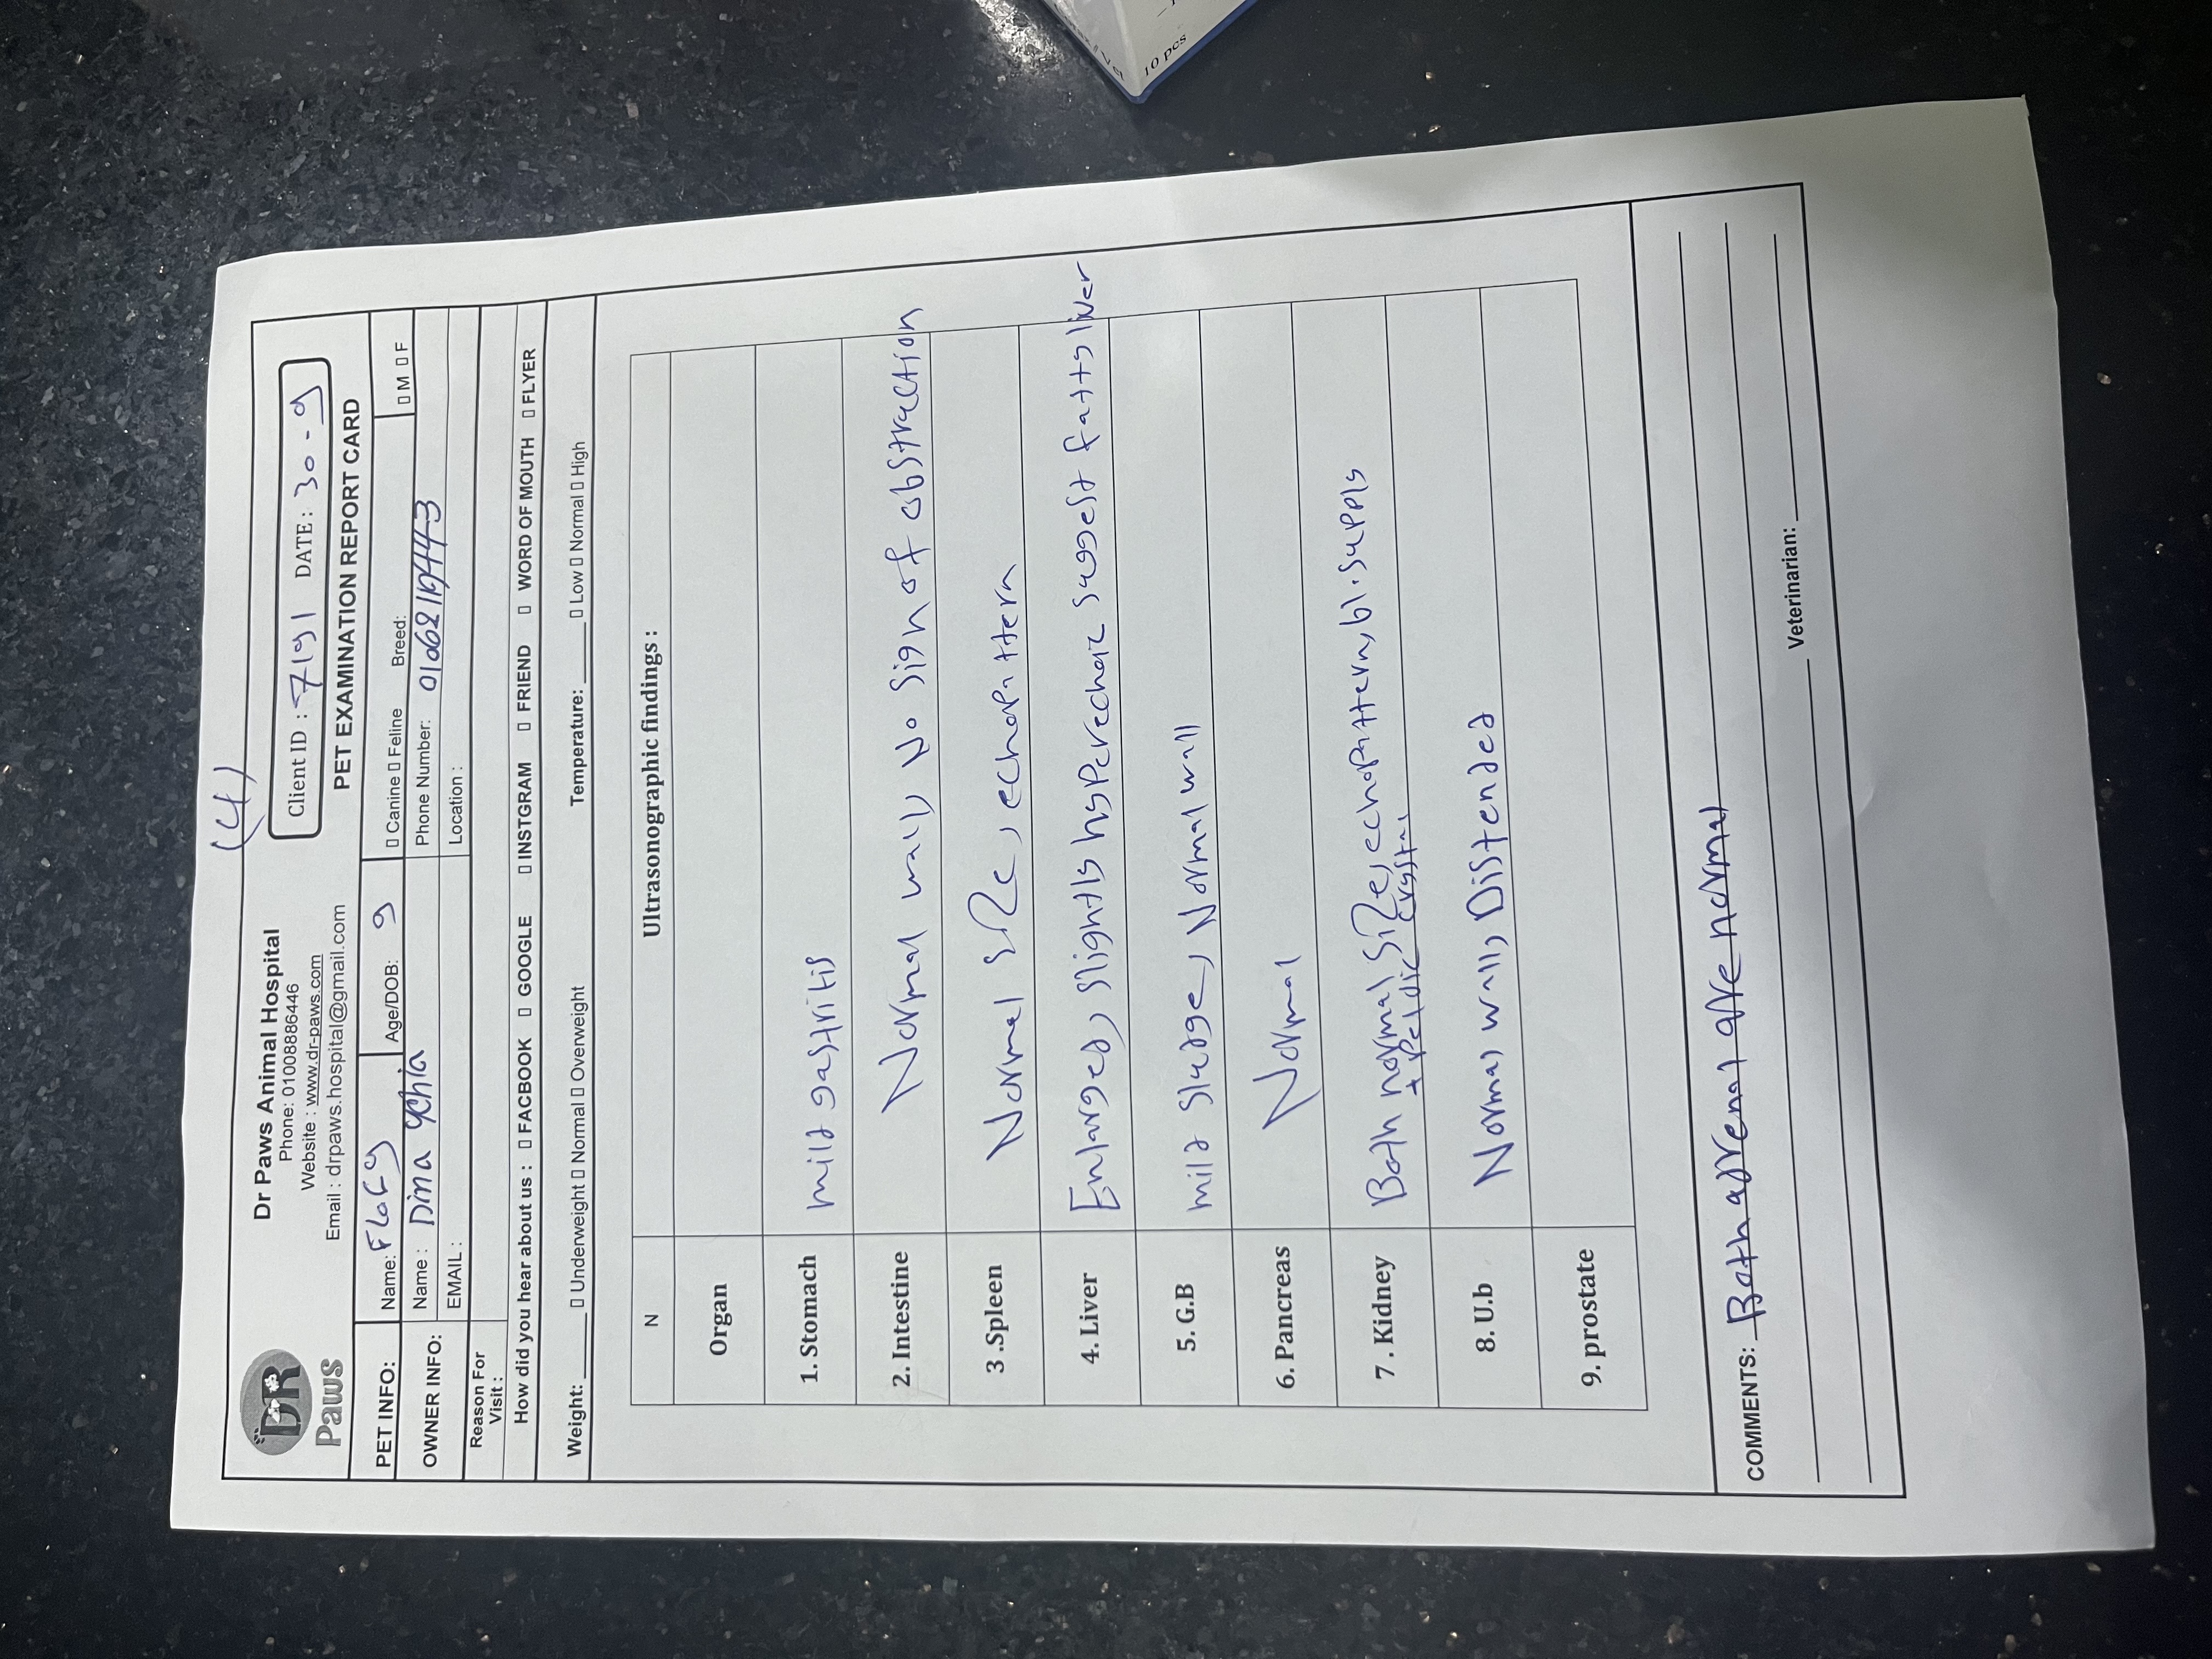 (4)
DR
Paws
Dr Paws Animal Hospital
Phone: 01008886446
Website : www.dr-paws.com
Email : drpaws.hospital@gmail.com
Client ID : 7191 DATE : 30-9
PET EXAMINATION REPORT CARD
PET INFO: Name: Age/DOB: 9 Canine Feline Breed: M F
OWNER INFO: Name : Dina Phone Number:
EMAIL : Location :
Reason For Visit :
How did you hear about us : FACEBOOK GOOGLE INSTGRAM FRIEND WORD OF MOUTH FLYER
Weight: Underweight Normal Overweight Temperature: Low Normal High
N Ultrasonographic findings :
Organ
1. Stomach mild gastritis
2. Intestine Normal wall, No sign of obstraction
3 .Spleen Normal size, echopattern
4. Liver Enlarged, slightly hyperechoic suggest fatty liver
5. G.B mild sludge, Normal wall
6. Pancreas Normal
7 . Kidney Both normal size, echopattern, bl. supply
+ Pelvic crystal
8. U.b Normal wall, Distended
9. prostate
COMMENTS: Both adrenal are normal
Veterinarian:
10 pcs